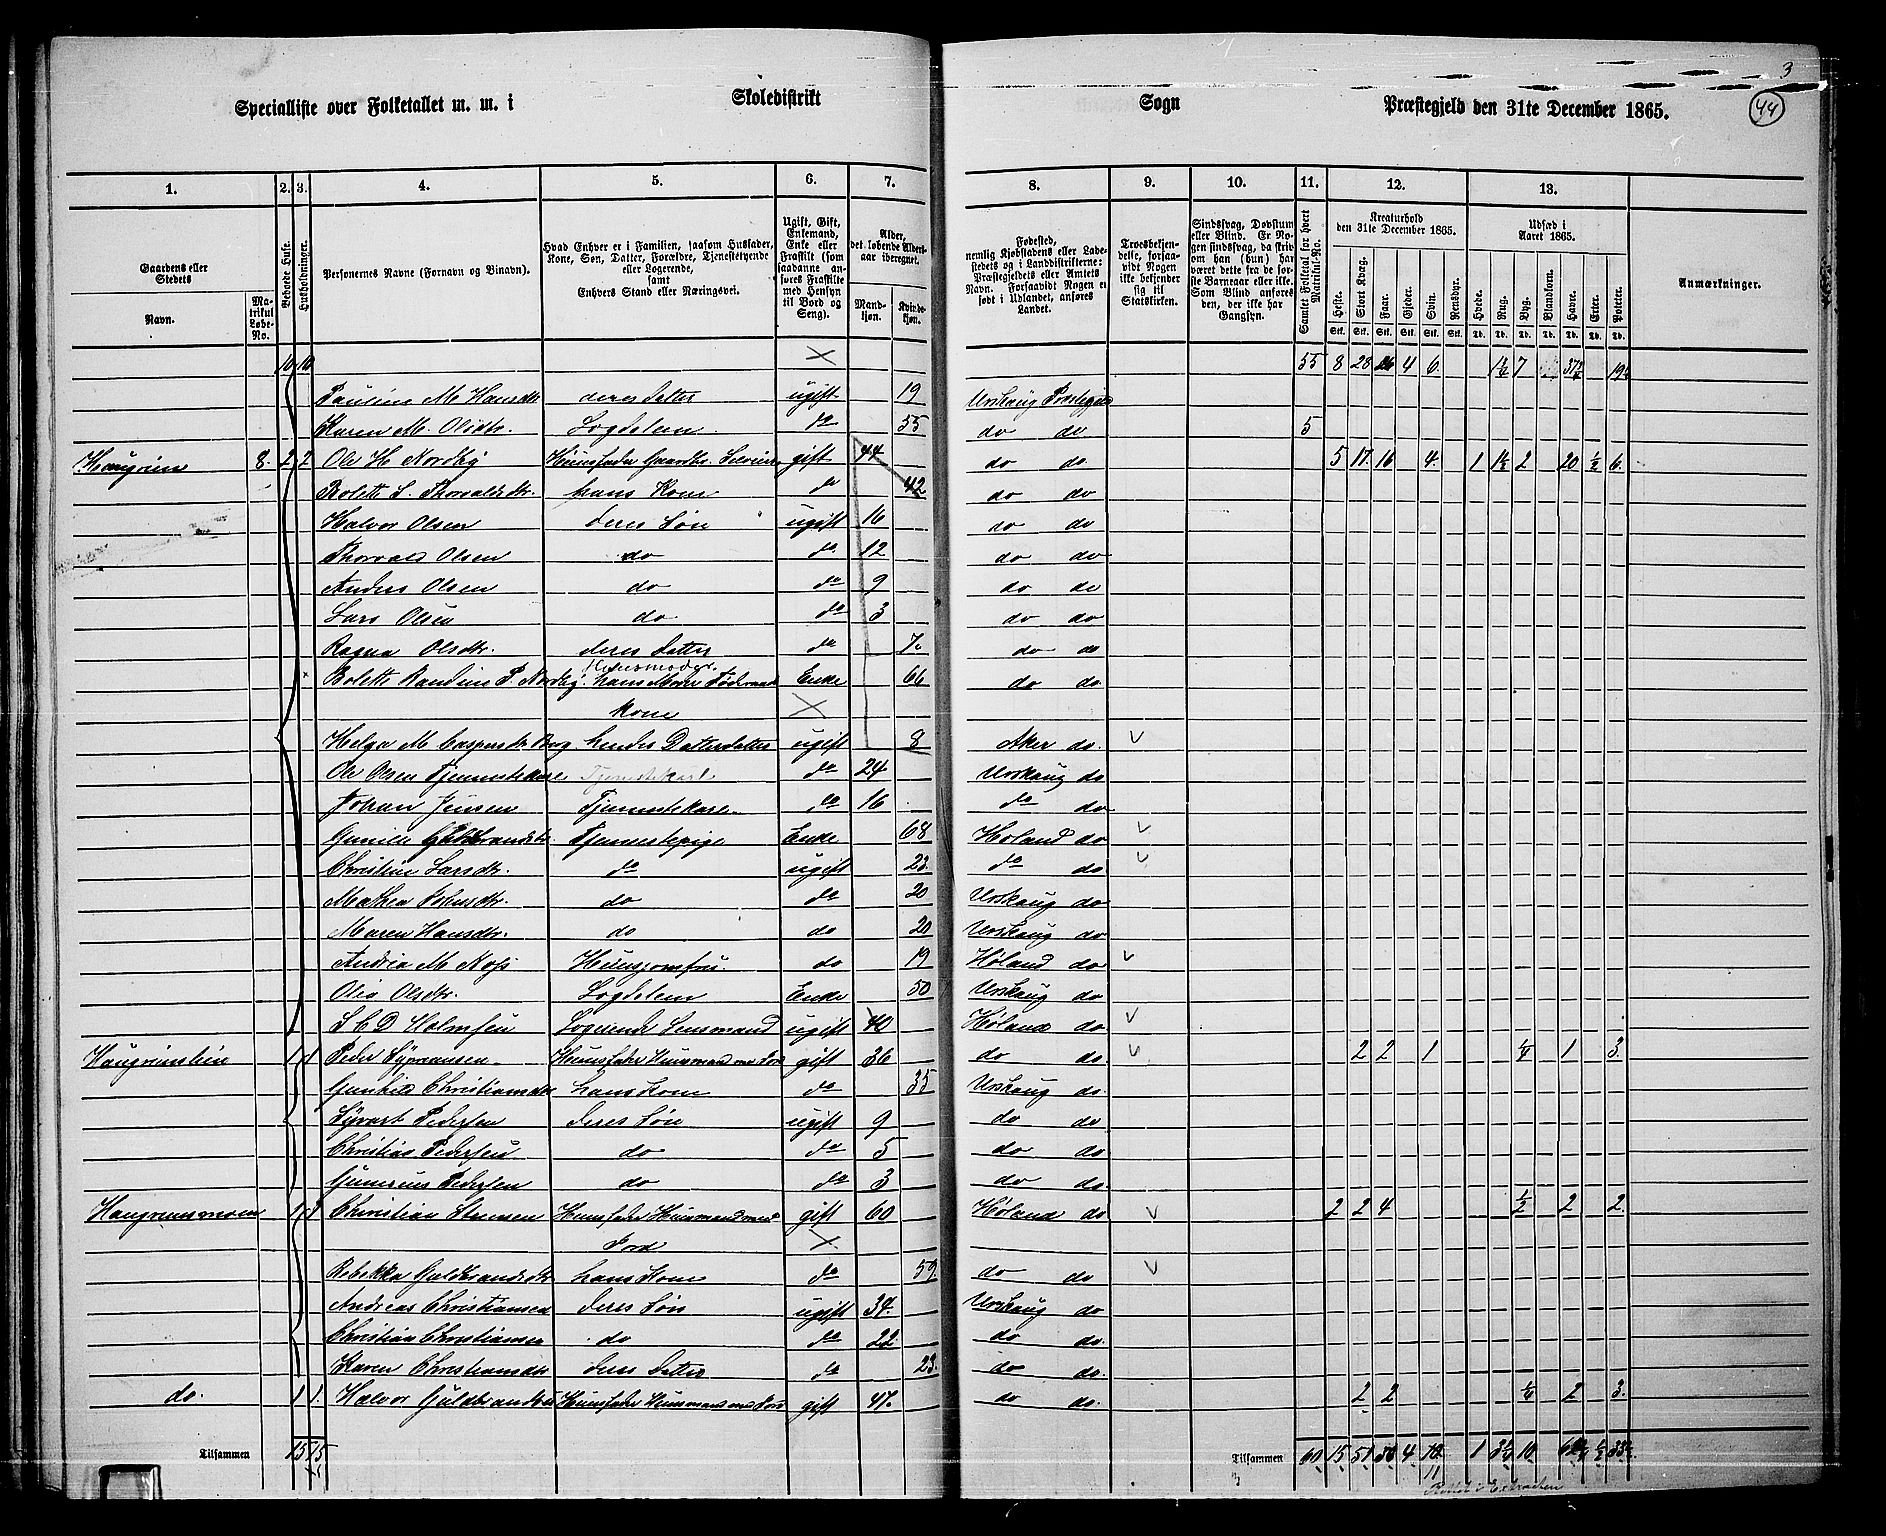 3
44
Specialliste over Folketallet m. m. i Skoledistrikt Sogn Præstegjeld den 31te December 1865.
1. 2. 3. 4. 5. 6. 7. 8. 9. 10. 11. 12. 13.
Gaardens eller Stedets
Navn.
Matrikul Løbe-No.
Beboede Huse.
Husholdninger.
Personernes Navne (Fornavn og Binavn).
Hvad Enhver er i Familien, saasom Husfader, Kone, Søn, Datter, Forældre, Tjenestetyende eller Logerende, samt Enhvers Stand eller Næringsvei.
Ugift, Gift, Enkemand, Enke eller Fraskilt (som saadanne anføres Fraskilte med Hensyn til Bord og Seng).
Alder, det løbende Aldersaar iberegnet.
Mandkjøn. Kvindekjøn.
Fødested, nemlig Kjøbstadens eller Ladestedets og i Landdistrikterne: Præstegjeldets eller Amtets Navn. Forsaavidt Nogen er født i Udlandet, anføres Landet.
Troesbekjendelse, forsaavidt Nogen ikke bekjender sig til Statskirken.
Sindssvag, Døvstum eller Blind. Er Nogen sindssvag, da skrives om han (hun) har været dette fra de første Barneaar eller ikke. Som Blind ansøres den, der ikke har Gangsyn.
Samlet Folketal for hvert Matrikul-No.
Kreaturhold den 31te December 1865.
Heste. Stort Kvæg. Faar. Gjeder. Svin. Rensdyr.
Udsæd i Aaret 1865.
Hvede. Rug. Byg. Blandkorn. Havre. Erter. Poteter.
Anmærkninger.
10 10 55 8 28 26 4 6 7
Pauline M Hansdtr deres Datter ugift 19 Urskoug Præstegjeld
Karen M. Olsdtr. Logdelem do 55 do do 5
Haugrim 8. 2 2 Ole H Nordby Huusfader Gaardbr. gift 44 do do 5 17 16 4 1 1½ 2 20 ½ 6
Bolette L. Thorvaldsdtr. hans Kone do 42 do do
Halvor Olsen deres Søn ugift 16 do do
Thorvald Olsen do do 12 do do
Anders Olsen do do 9 do do
Lars Olsen do do 3 do do
Ragna Olsdtr. deres Datter do 7 do do
Bolette Randine P. Nordby hans Moder Enke 66 do do
kone
Helga M Caspersdtr Berg hendes Datterdatter ugift 8 Aker do.
Ole Olsen Tjenestekarl Tjenestekarl do 24 Urskoug do
Johan Jensen Tjenestekarl do 16 do do
Gunild Guldbrandsdtr. Tjenestepige Enke 68 Høland do
Christine Larsdtr. do ugift 23 do do
Mathea Johnsdtr. do do 20 Urskoug do
Maren Hansdtr. do do 20 Urskoug do
Andrea M Huusjomfru. do 19 Høland do
Olea Olsdtr. Logdelem Enke 50 Urskoug do
S C D Holmsen Logerende Lensmand ugift 40 Høland do
1 1 Peder Syversen Huusfader Huusmand med Jord gift 36 do do 2 2 1 ¼ 1 3
Gunhild Christiansdtr hans Kone do 35 Urskoug do.
Syvert Pedersen deres Søn ugift 9 do do
Christian Pedersen do do 5 do do
Gunerius Pedersen do do 3 do do
Haugrimsmoen 1 1 Christian Huusfader Huusmand med gift 60 Høland do 2 2 4 ½ 2 2
Jord
Rebekka Guldbrandsdtr hans Kone do 59 do do
Andreas Christiansen deres Søn ugift 34 Urskoug do
Christian Christiansen do do 22 do do
Karen Christiansdtr deres Datter do 23 do do.
do. 1 1. Halvor Guldbrandsen Huusfader Huusmand med Jord gift 47 do do. 2 2 ¼ 2 3
Tilsammen 15 15 Tilsammen 60 15 51 50 4 10 1 10
11